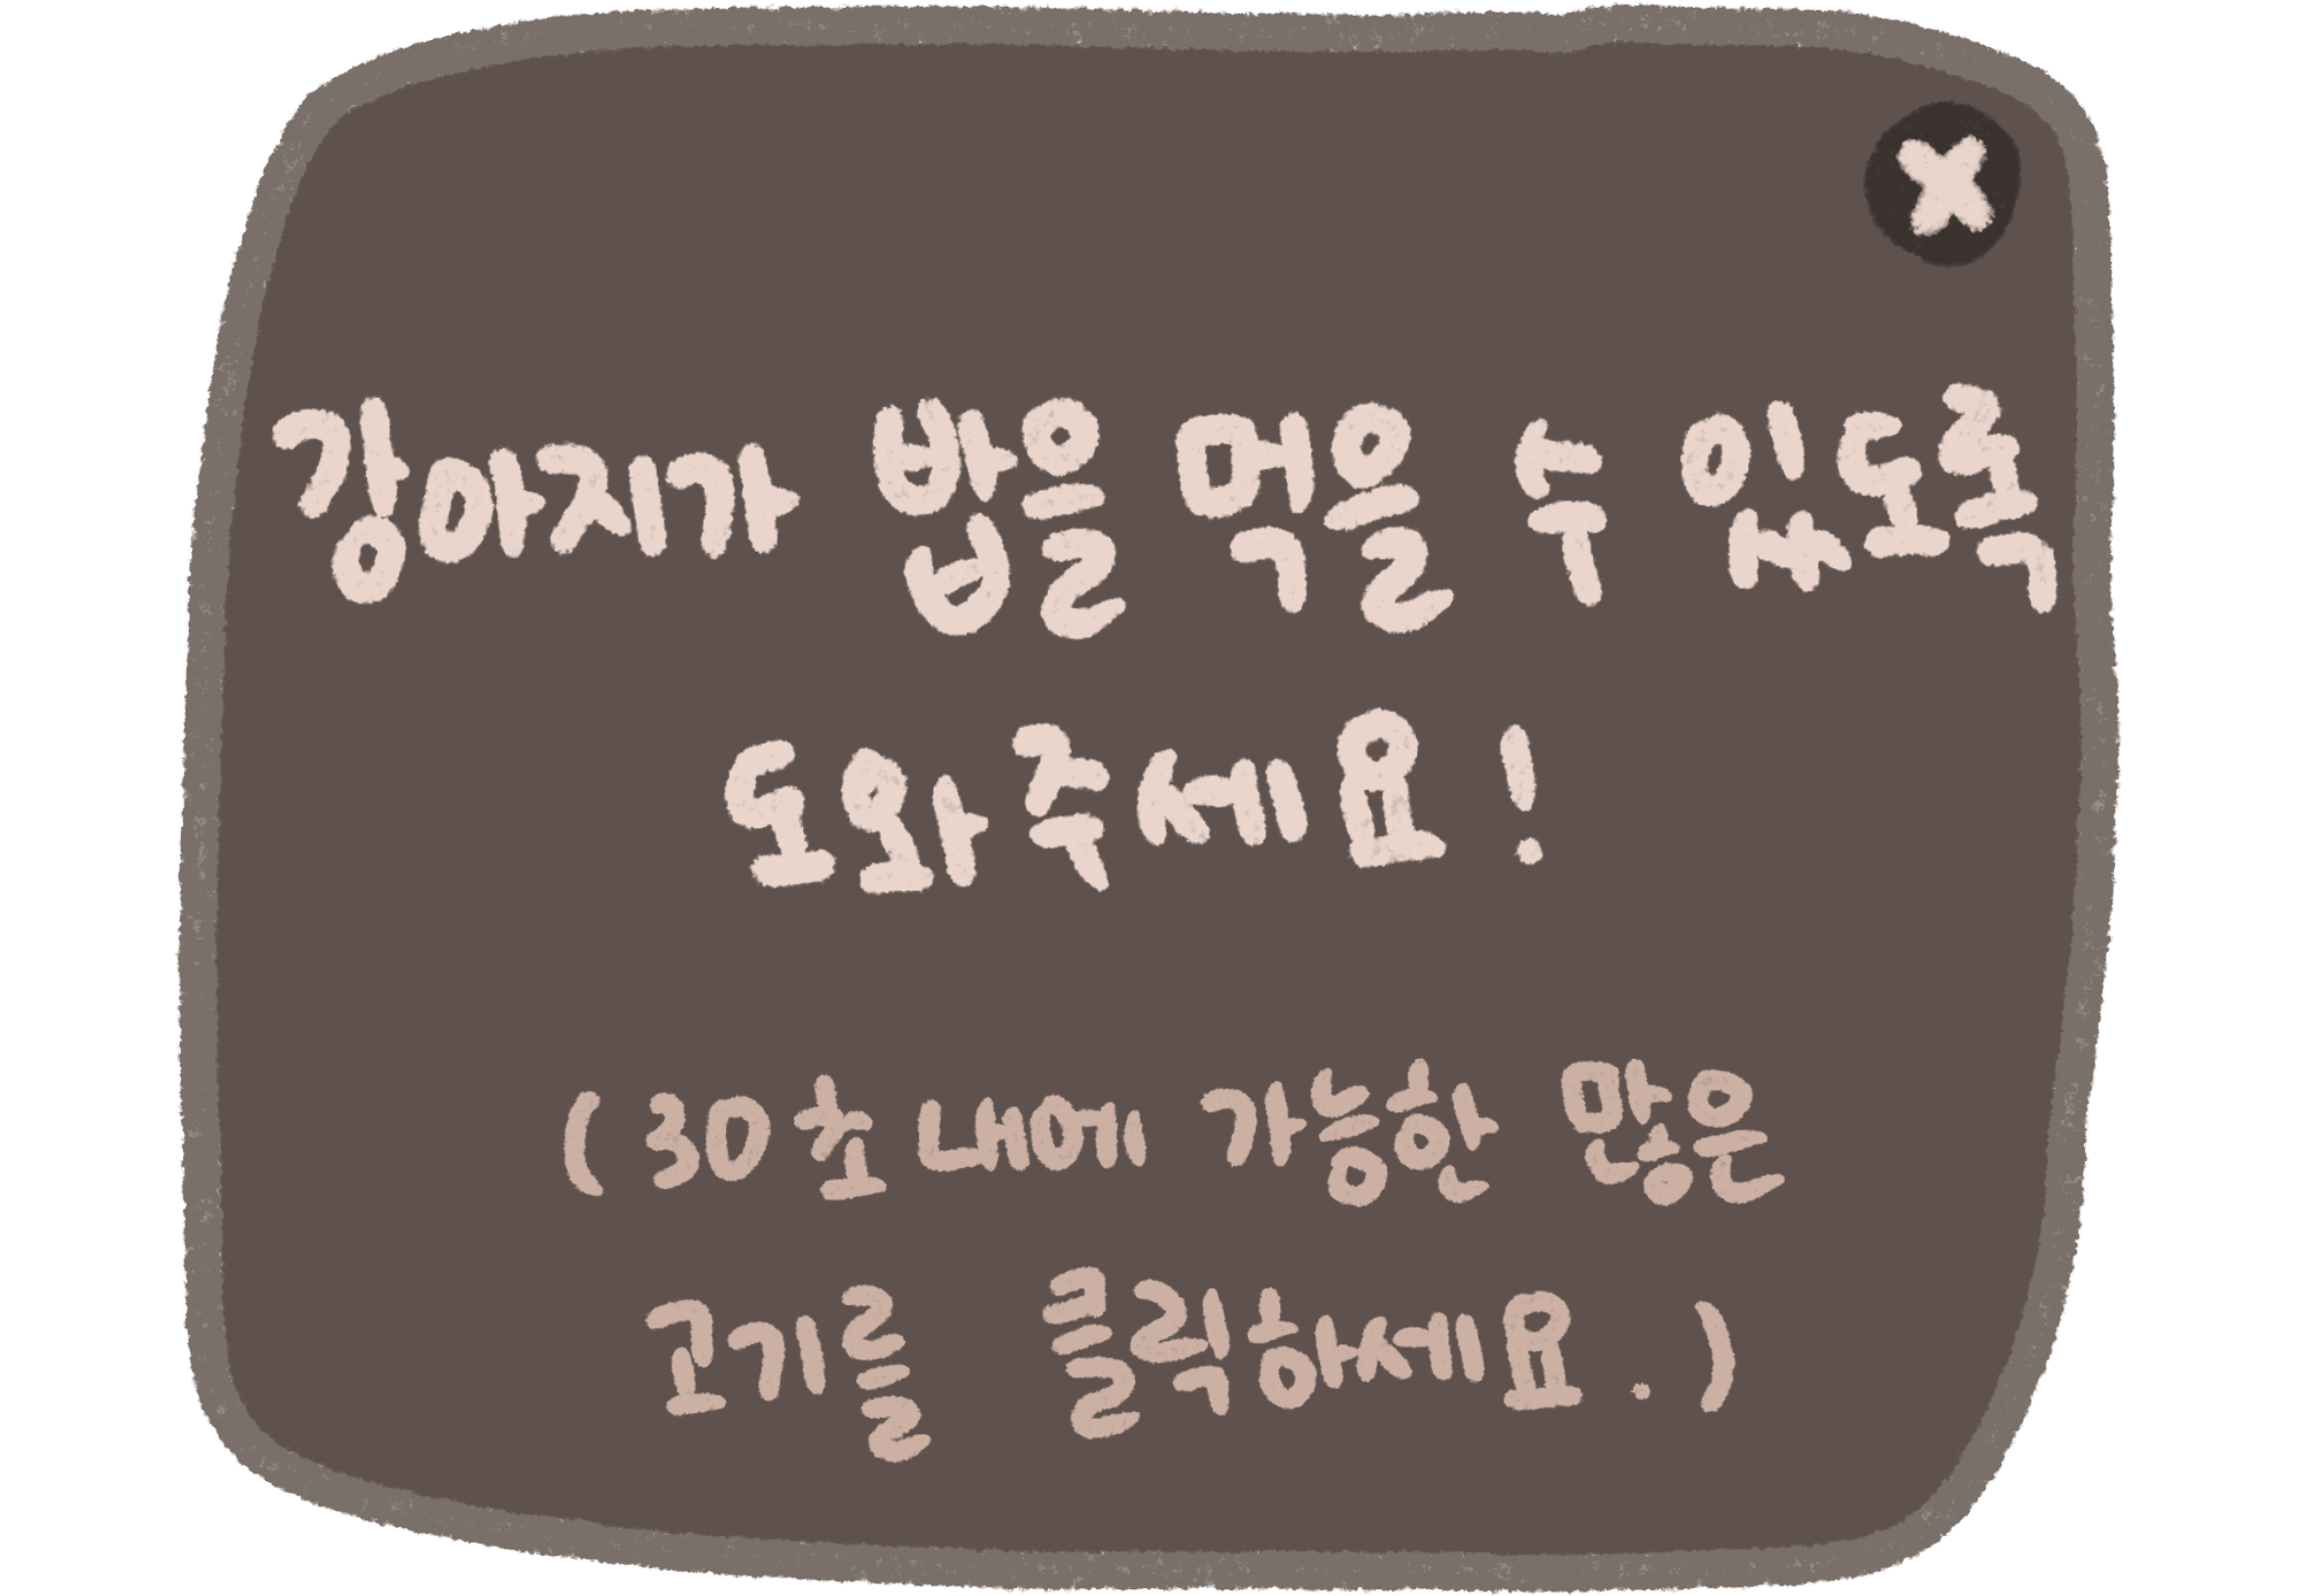 강아지가 밥을 먹을 수 있도록
도와주세요!
(30초내에 가능한 많은
고기를 클릭하세요.)